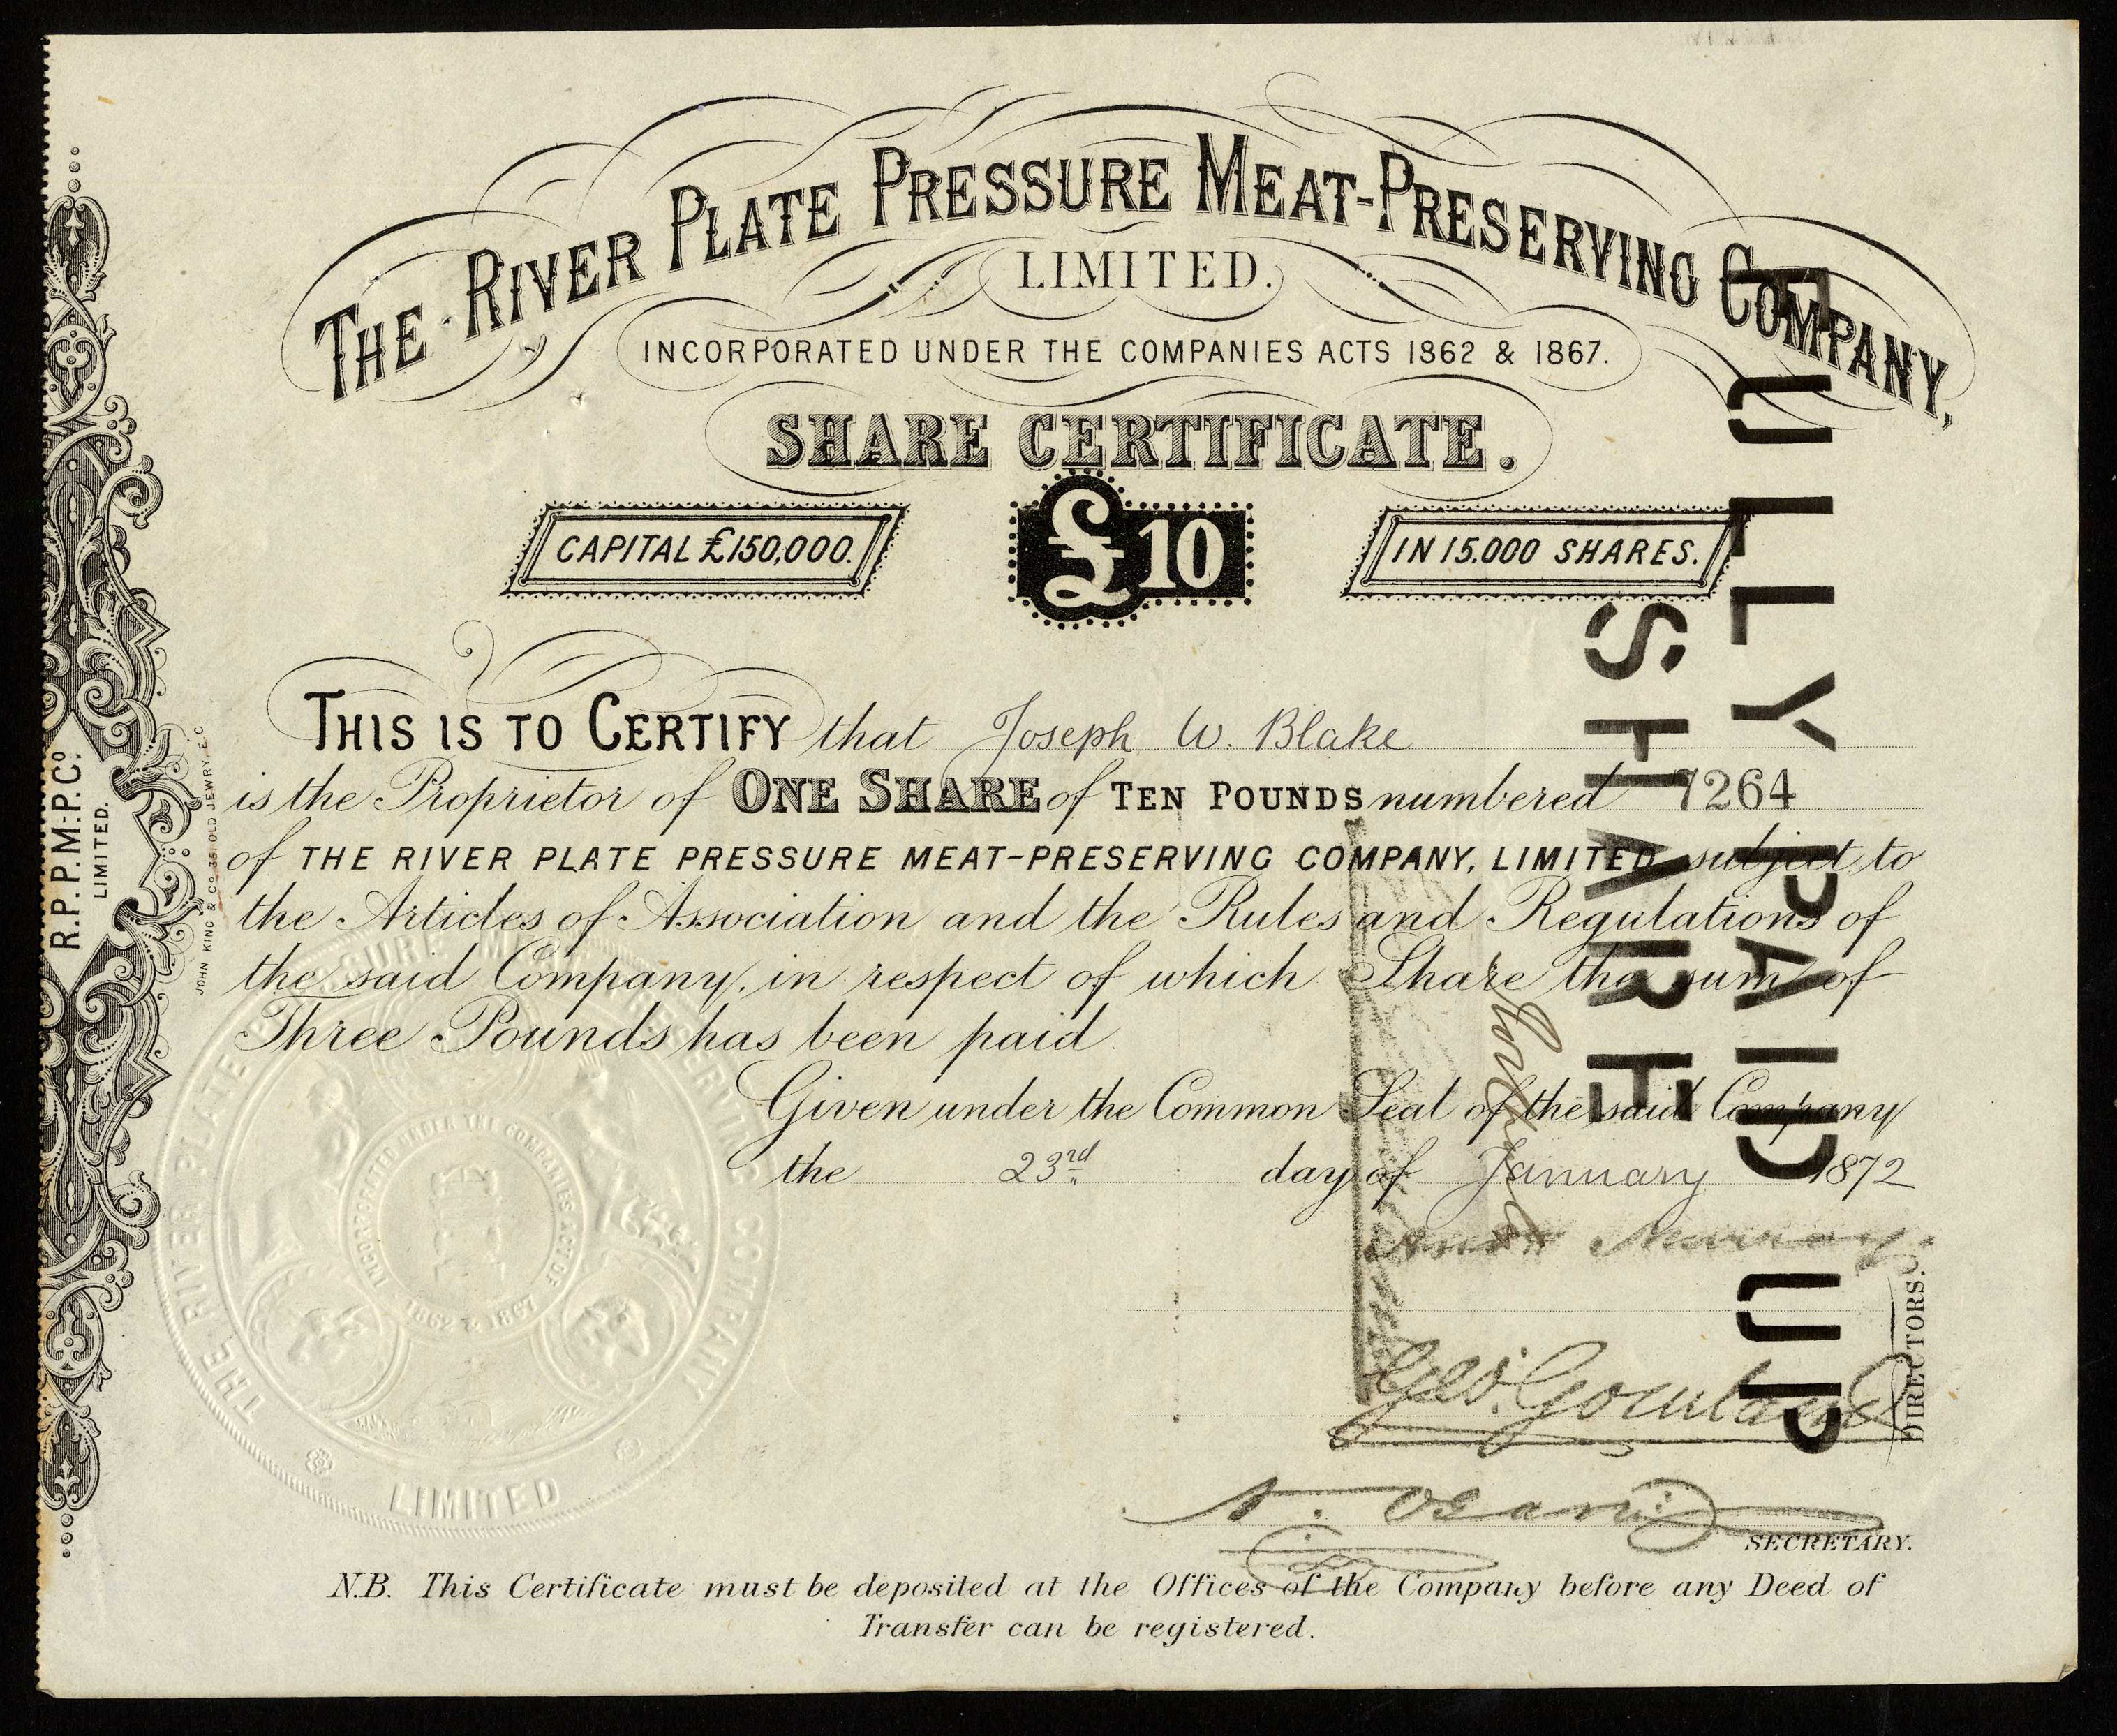 THE RIVER PLATE PRESSURE MEAT-PRESERVING COMPANY,
LIMITED.
INCORPORATED UNDER THE COMPANIES ACTS 1862 & 1867.
SHARE CERTIFICATE.
CAPITAL £150,000.
£10
IN 15.000 SHARES.
THIS IS TO CERTIFY that Joseph W. Blake
is the Proprietor of ONE SHARE of TEN POUNDS numbered 7264
of THE RIVER PLATE PRESSURE MEAT-PRESERVING COMPANY, LIMITED subject to
the Articles of Association and the Rules and Regulations of
the said Company, in respect of which Share the sum of
Three Pounds has been paid
Given under the Common Seal of the said Company
the 23rd day of January 1872
Murray.
Geo. Gowland
DIRECTORS.
SECRETARY.
N.B. This Certificate must be deposited at the Offices of the Company before any Deed of
Transfer can be registered.
FULLY PAID UP
SHARE
R.P.P.M-P.Co.
LIMITED.
JOHN KING & Co OLD JEWRY E.C
THE RIVER PLATE PRESSURE MEAT PRESERVING COMPANY
LIMITED
INCORPORATED UNDER THE COMPANIES ACT OF
1862 & 1867